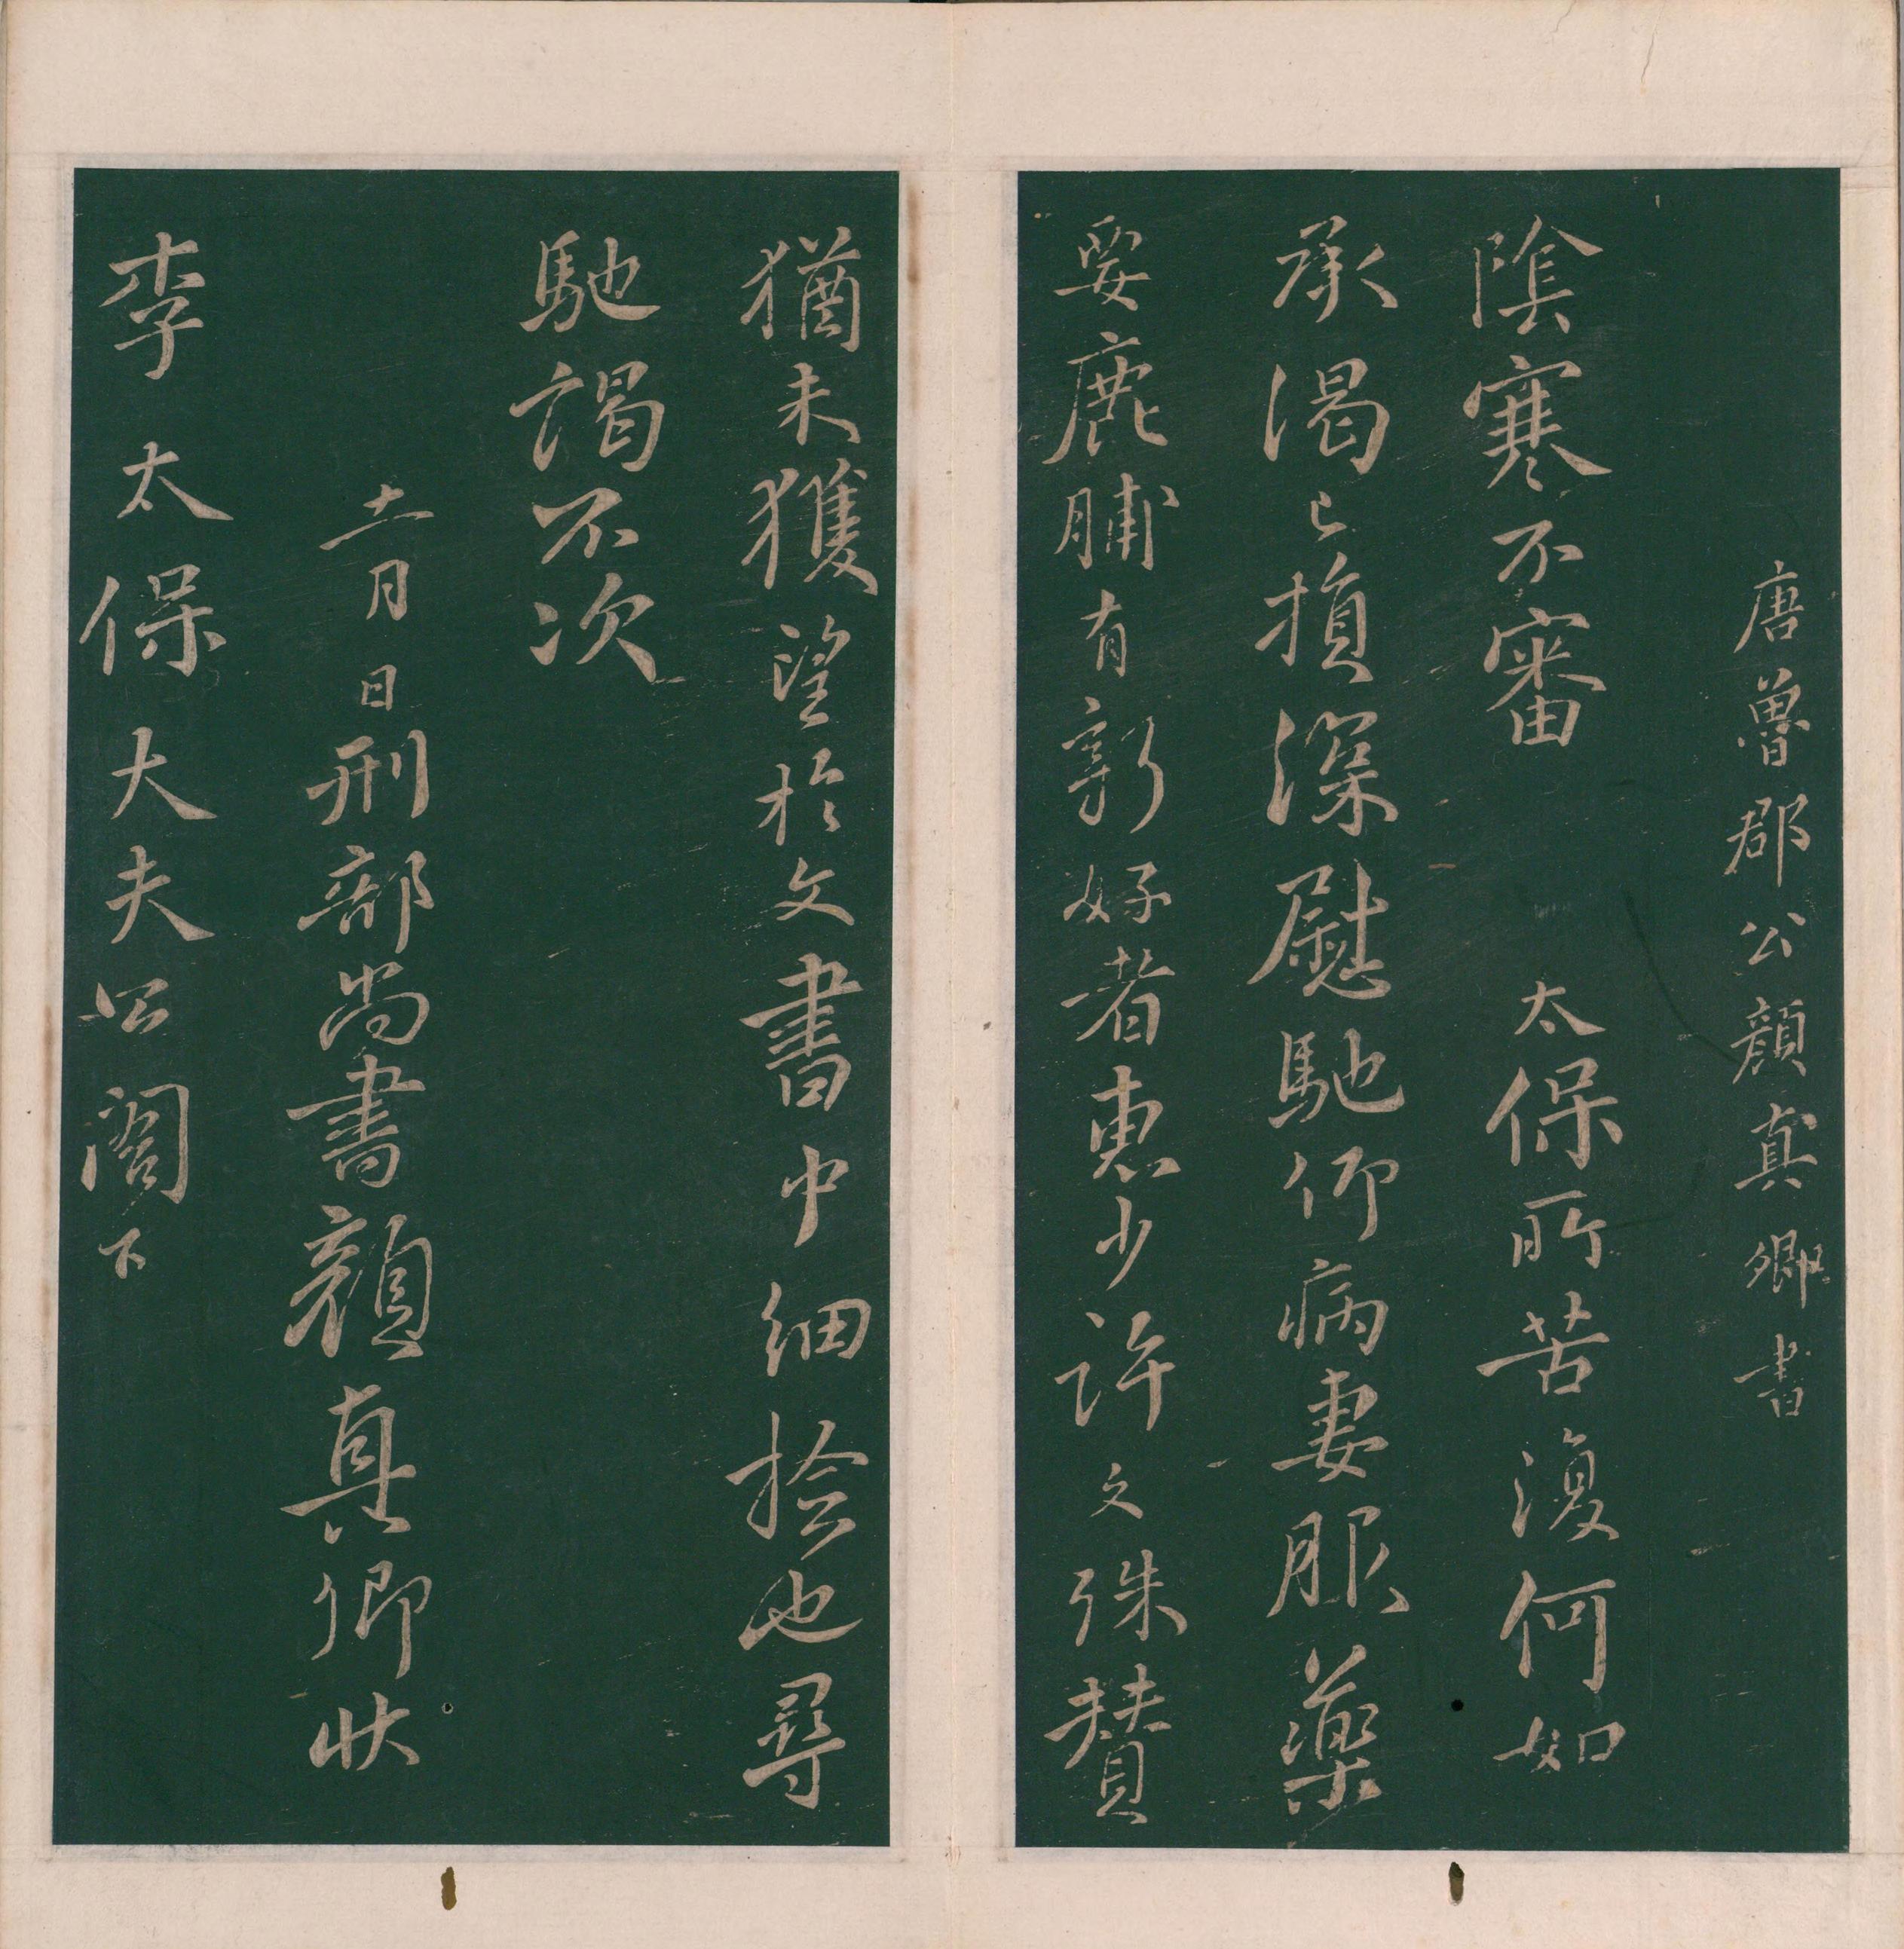 唐魯郡公顏真卿書
陰寒不審 太保所苦復何如
承渴已損深慰馳仰病妻服藥
要鹿脯有新好者惠少許文殊贊
猶未獲望於文書中細撿也尋
馳謁不次
十一月日刑部尚書顏真卿狀
李太保大夫公閤下